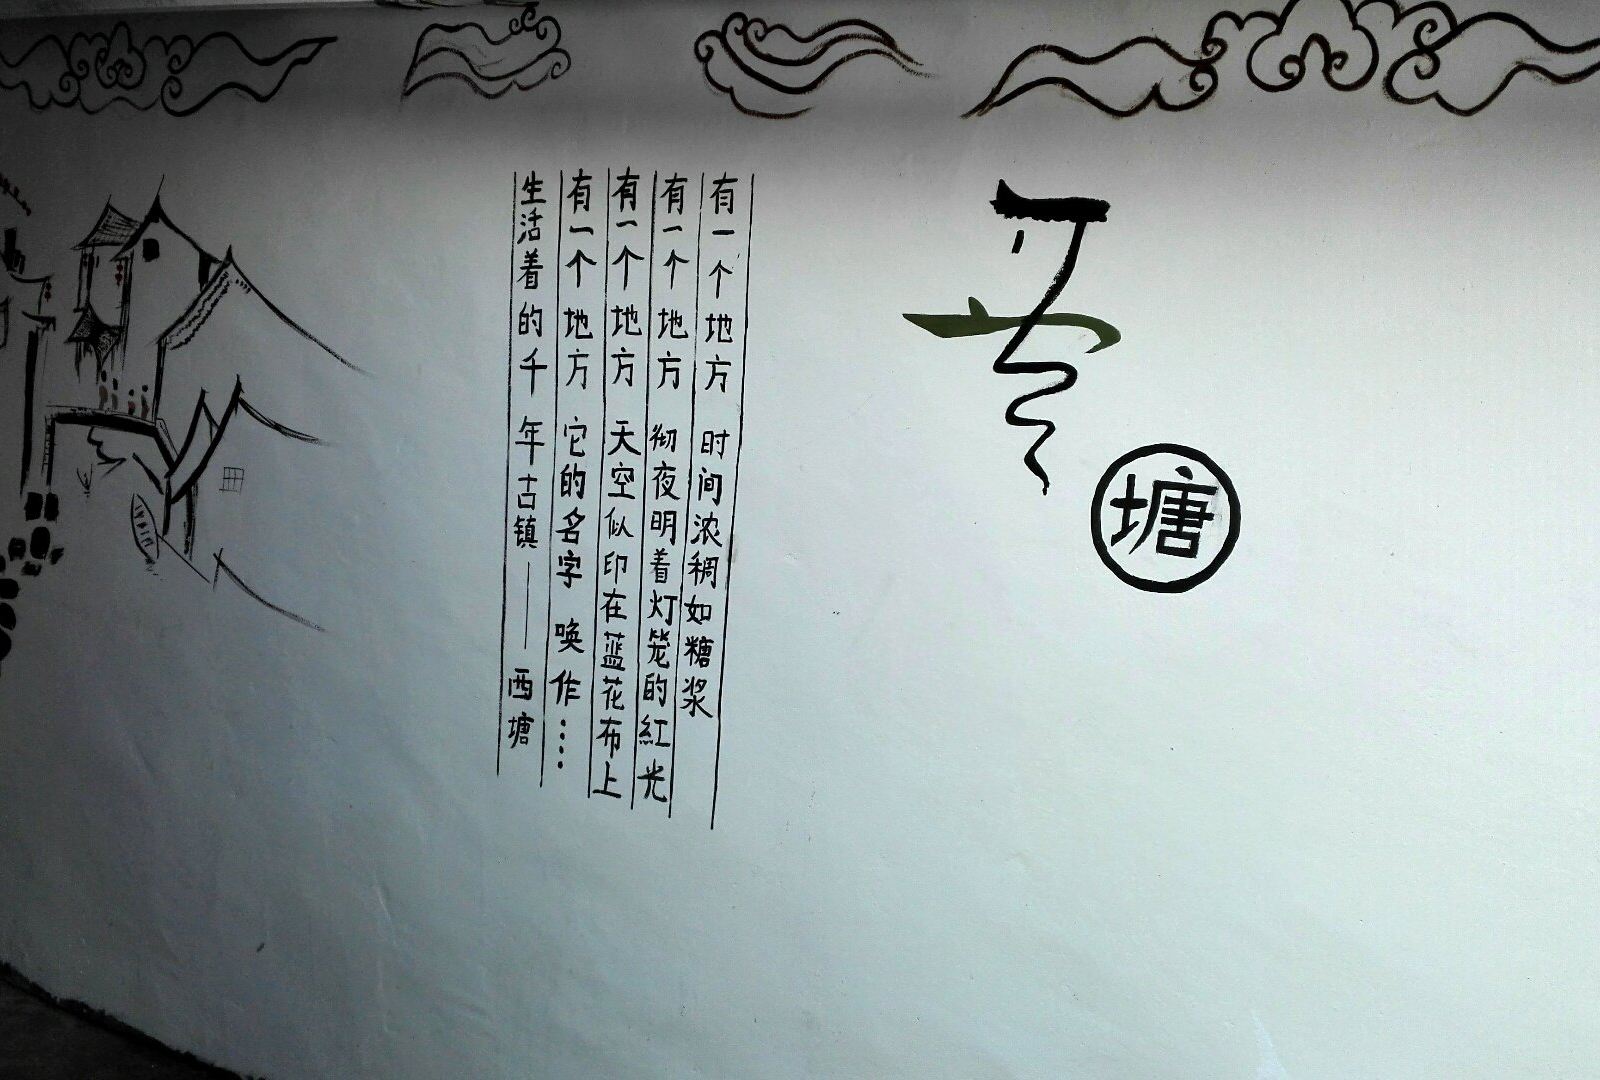 塘
有一个地方 时间浓稠如糖浆
有一个地方 彻夜明着灯笼的紅光
有一个地方 天空似印在蓝花布上
有一个地方 它的名字 唤作……
生活着的千年古镇——西塘